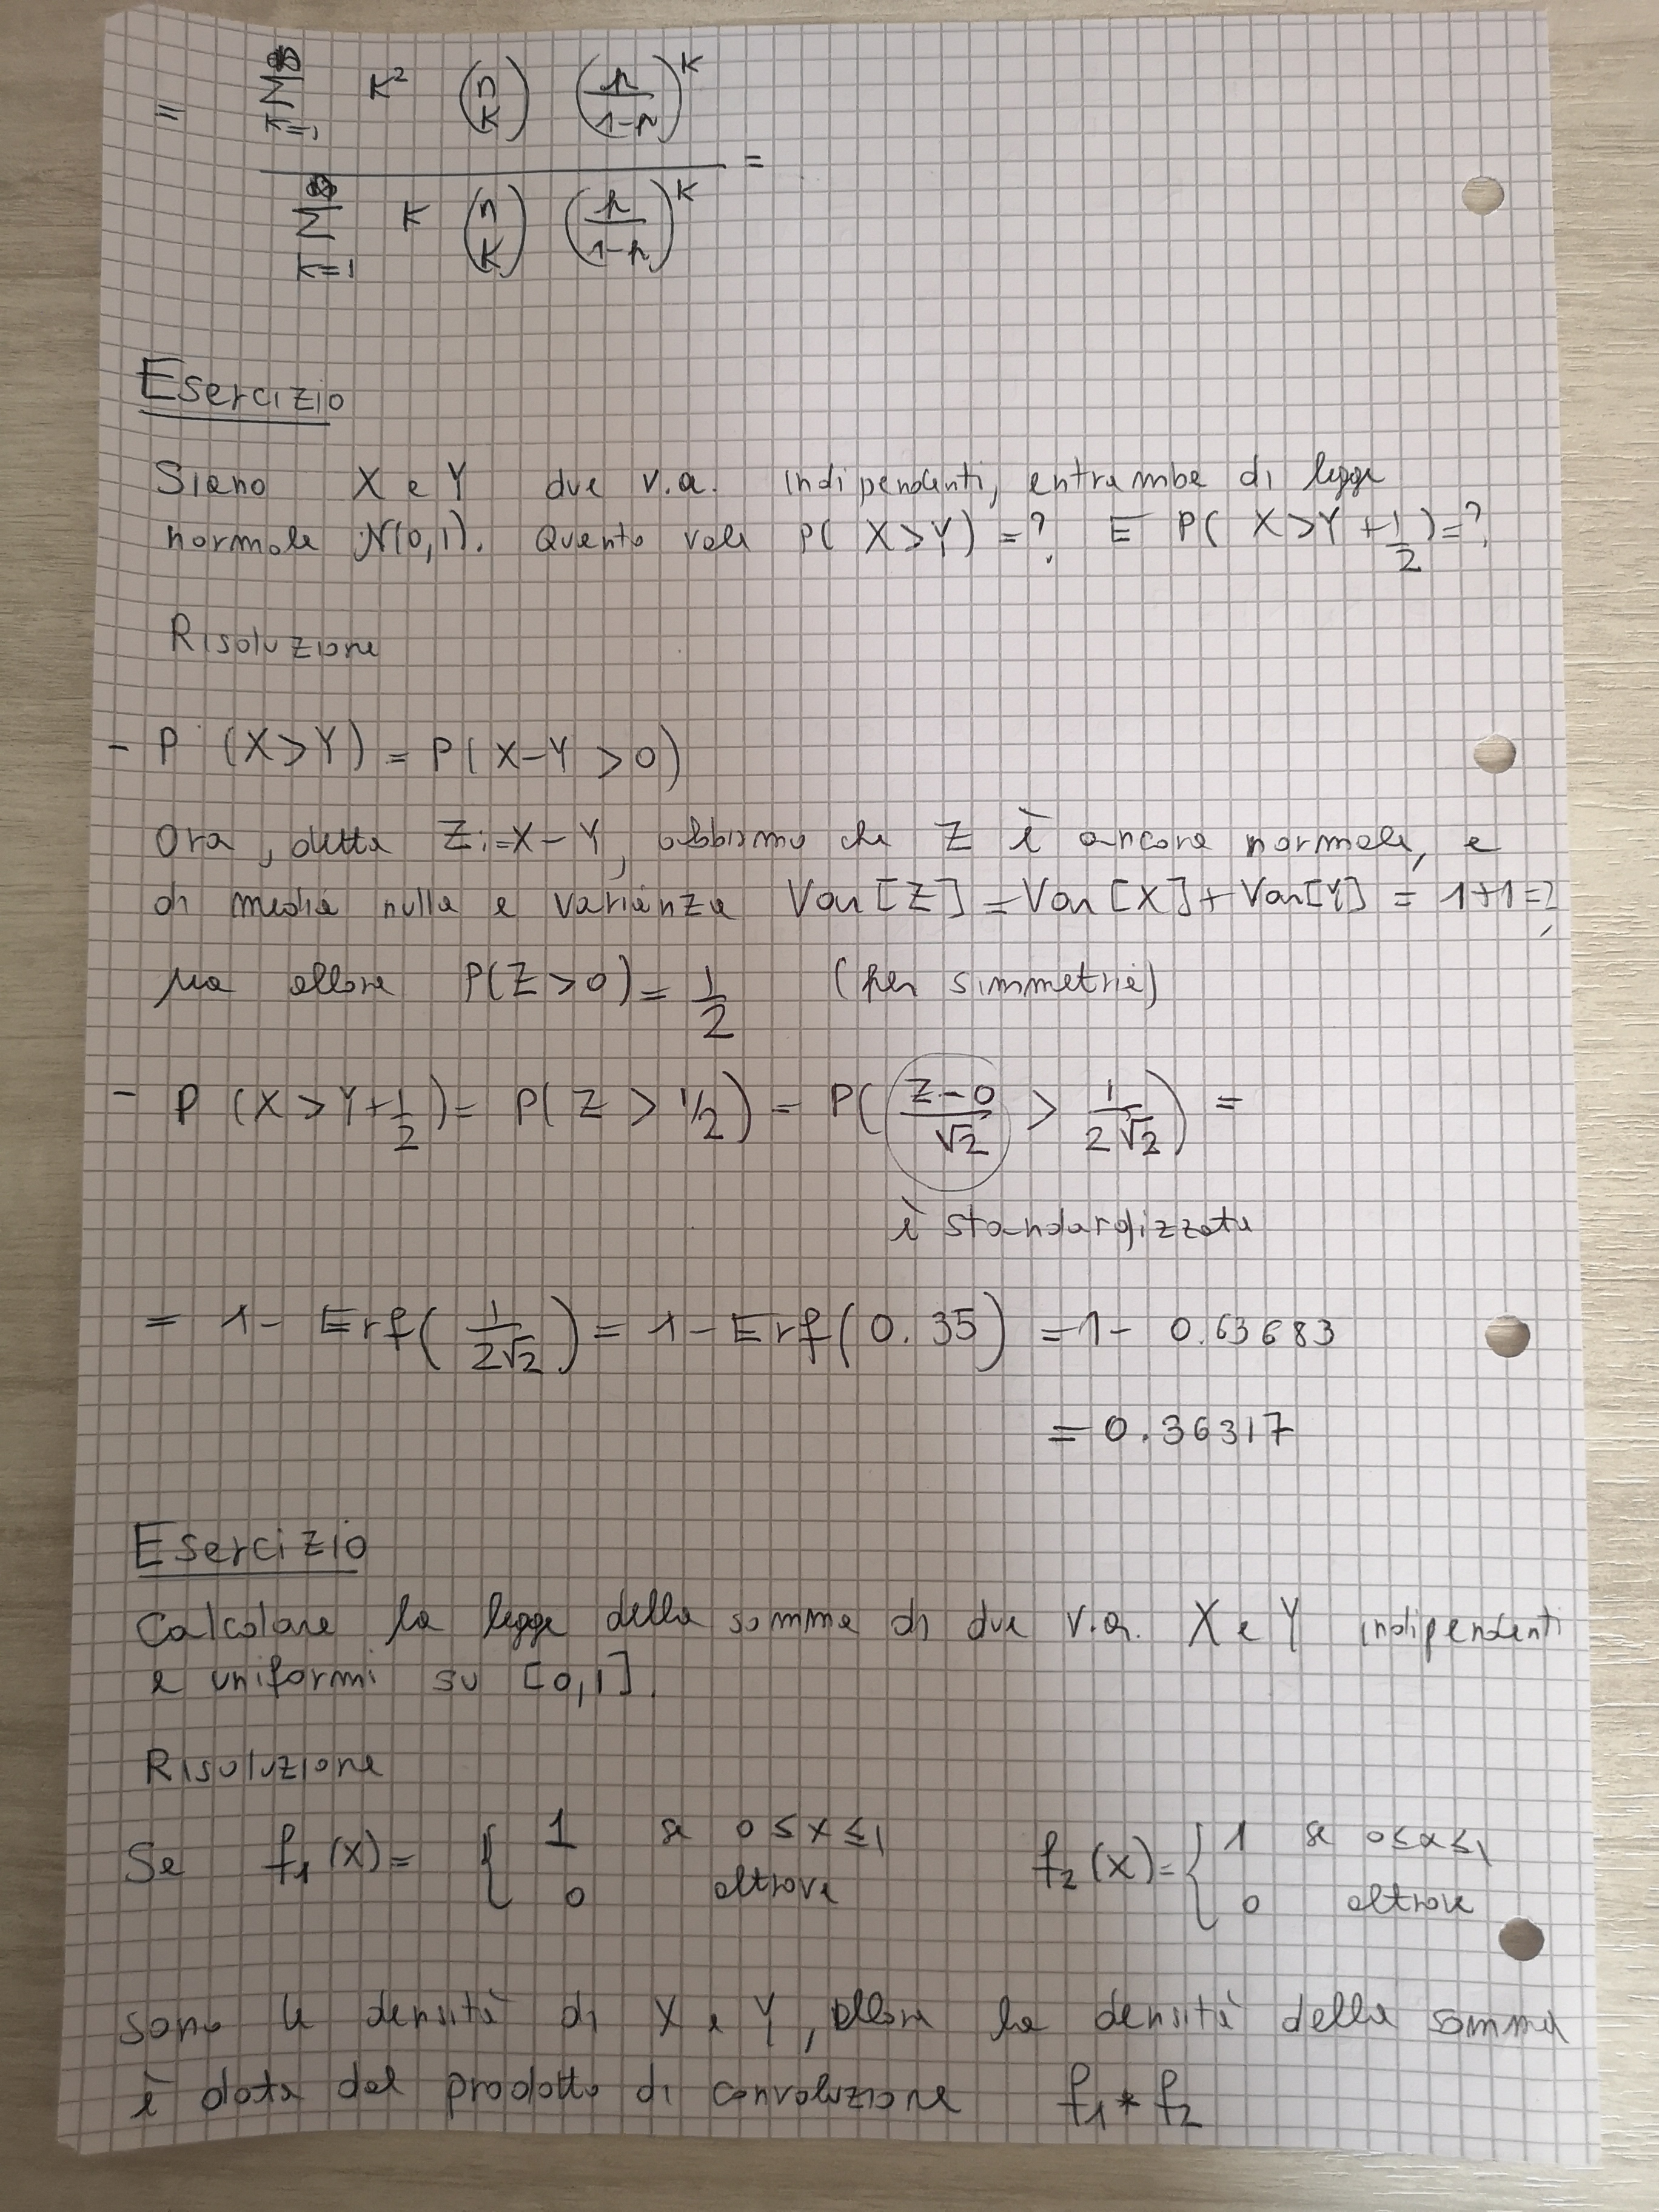 = \frac{\sum_{k=1}^{∞} K² \binom{n}{K} (\frac{p}{1-p})^K}{\sum_{k=1}^{∞} K \binom{n}{K} (\frac{p}{1-p})^K} =
Esercizio
Siano X e Y due v.a. indipendenti, entrambe di legge
normale N(0,1). Quanto vale P( X>Y) =? E P( X>Y + 1/2)=?
Risoluzione
- P (X>Y) = P( X-Y >0)
Ora, detta Z:=X-Y, abbiamo che Z è ancora normale, e
di media nulla e varianza Var[Z] = Var[X]+Var[Y] = 1+1=2
Ma allora P(Z>0) = 1/2 (per simmetria)
- P (X>Y+1/2) = P( Z > 1/2) = P( (Z-0)/√2 > 1/(2√2) ) =
è standardizzata
= 1- Erf( 1/(2√2) ) = 1- Erf( 0.35) = 1- 0.63683
= 0.36317
Esercizio
Calcolare la legge della somma di due v.a. X e Y indipendenti
e uniformi su [0,1].
Risoluzione
Se f₁(x)= { 1 se 0≤x≤1 f₂(x)= { 1 se 0≤x≤1
0 altrove 0 altrove
sono le densità di X e Y, allora la densità della somma
è data dal prodotto di convoluzione f₁ * f₂